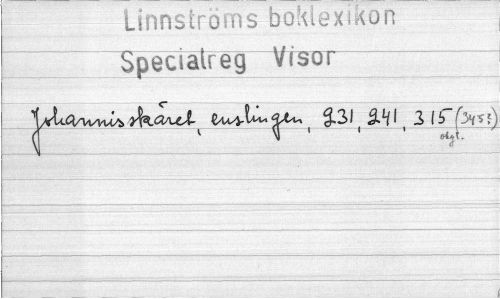 Linnströms boklexikon
Specialreg Visor
Johannisskäret, enslingen, 231, 241, 315 (345?)
okgt.